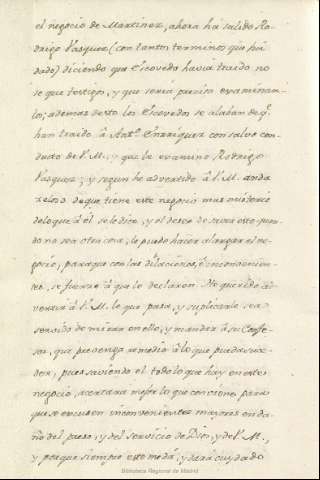 el negocio de Martinez, ahora há salido Ro-
drigo Vasquez (con tantos terminos que há
dado) diciendo que Escovedo havia traido no
se que testigo, y que seria preciso examinar-
lo; ademas desto los Escovedos se alaban de q.ᵉ
han traido á Ant.º Enrriquez con salvo con-
ducto de V. M., y que le examino Rodrigo
Vasquez; y segun he advertido á V. M. anda
zeloso de que tiene este negocio mas misterio
de lo que á él se le dice, y el deseo de
no sea otra cosa, le puede hacer alargar el ne-
gocio, para que con las dilaciones, é inconvenien-
tes, se fuerze á que lo declaren. He querido ad-
vertir á V. M. lo que pasa, y suplicarle sea
servido de mirar en ello, y mandar á su Confe-
sor, que prevenga remedio á lo que puede suce-
der, pues saviendo el todo lo que hay en este
negocio, acertara mejor lo que conviene para
que se escusen inconvenientes mayores en da-
ño del preso, y del servicio de Dios, y de V. M.,
y porque siempre esto me dá, y dará cuydado
Biblioteca Regional de Madrid